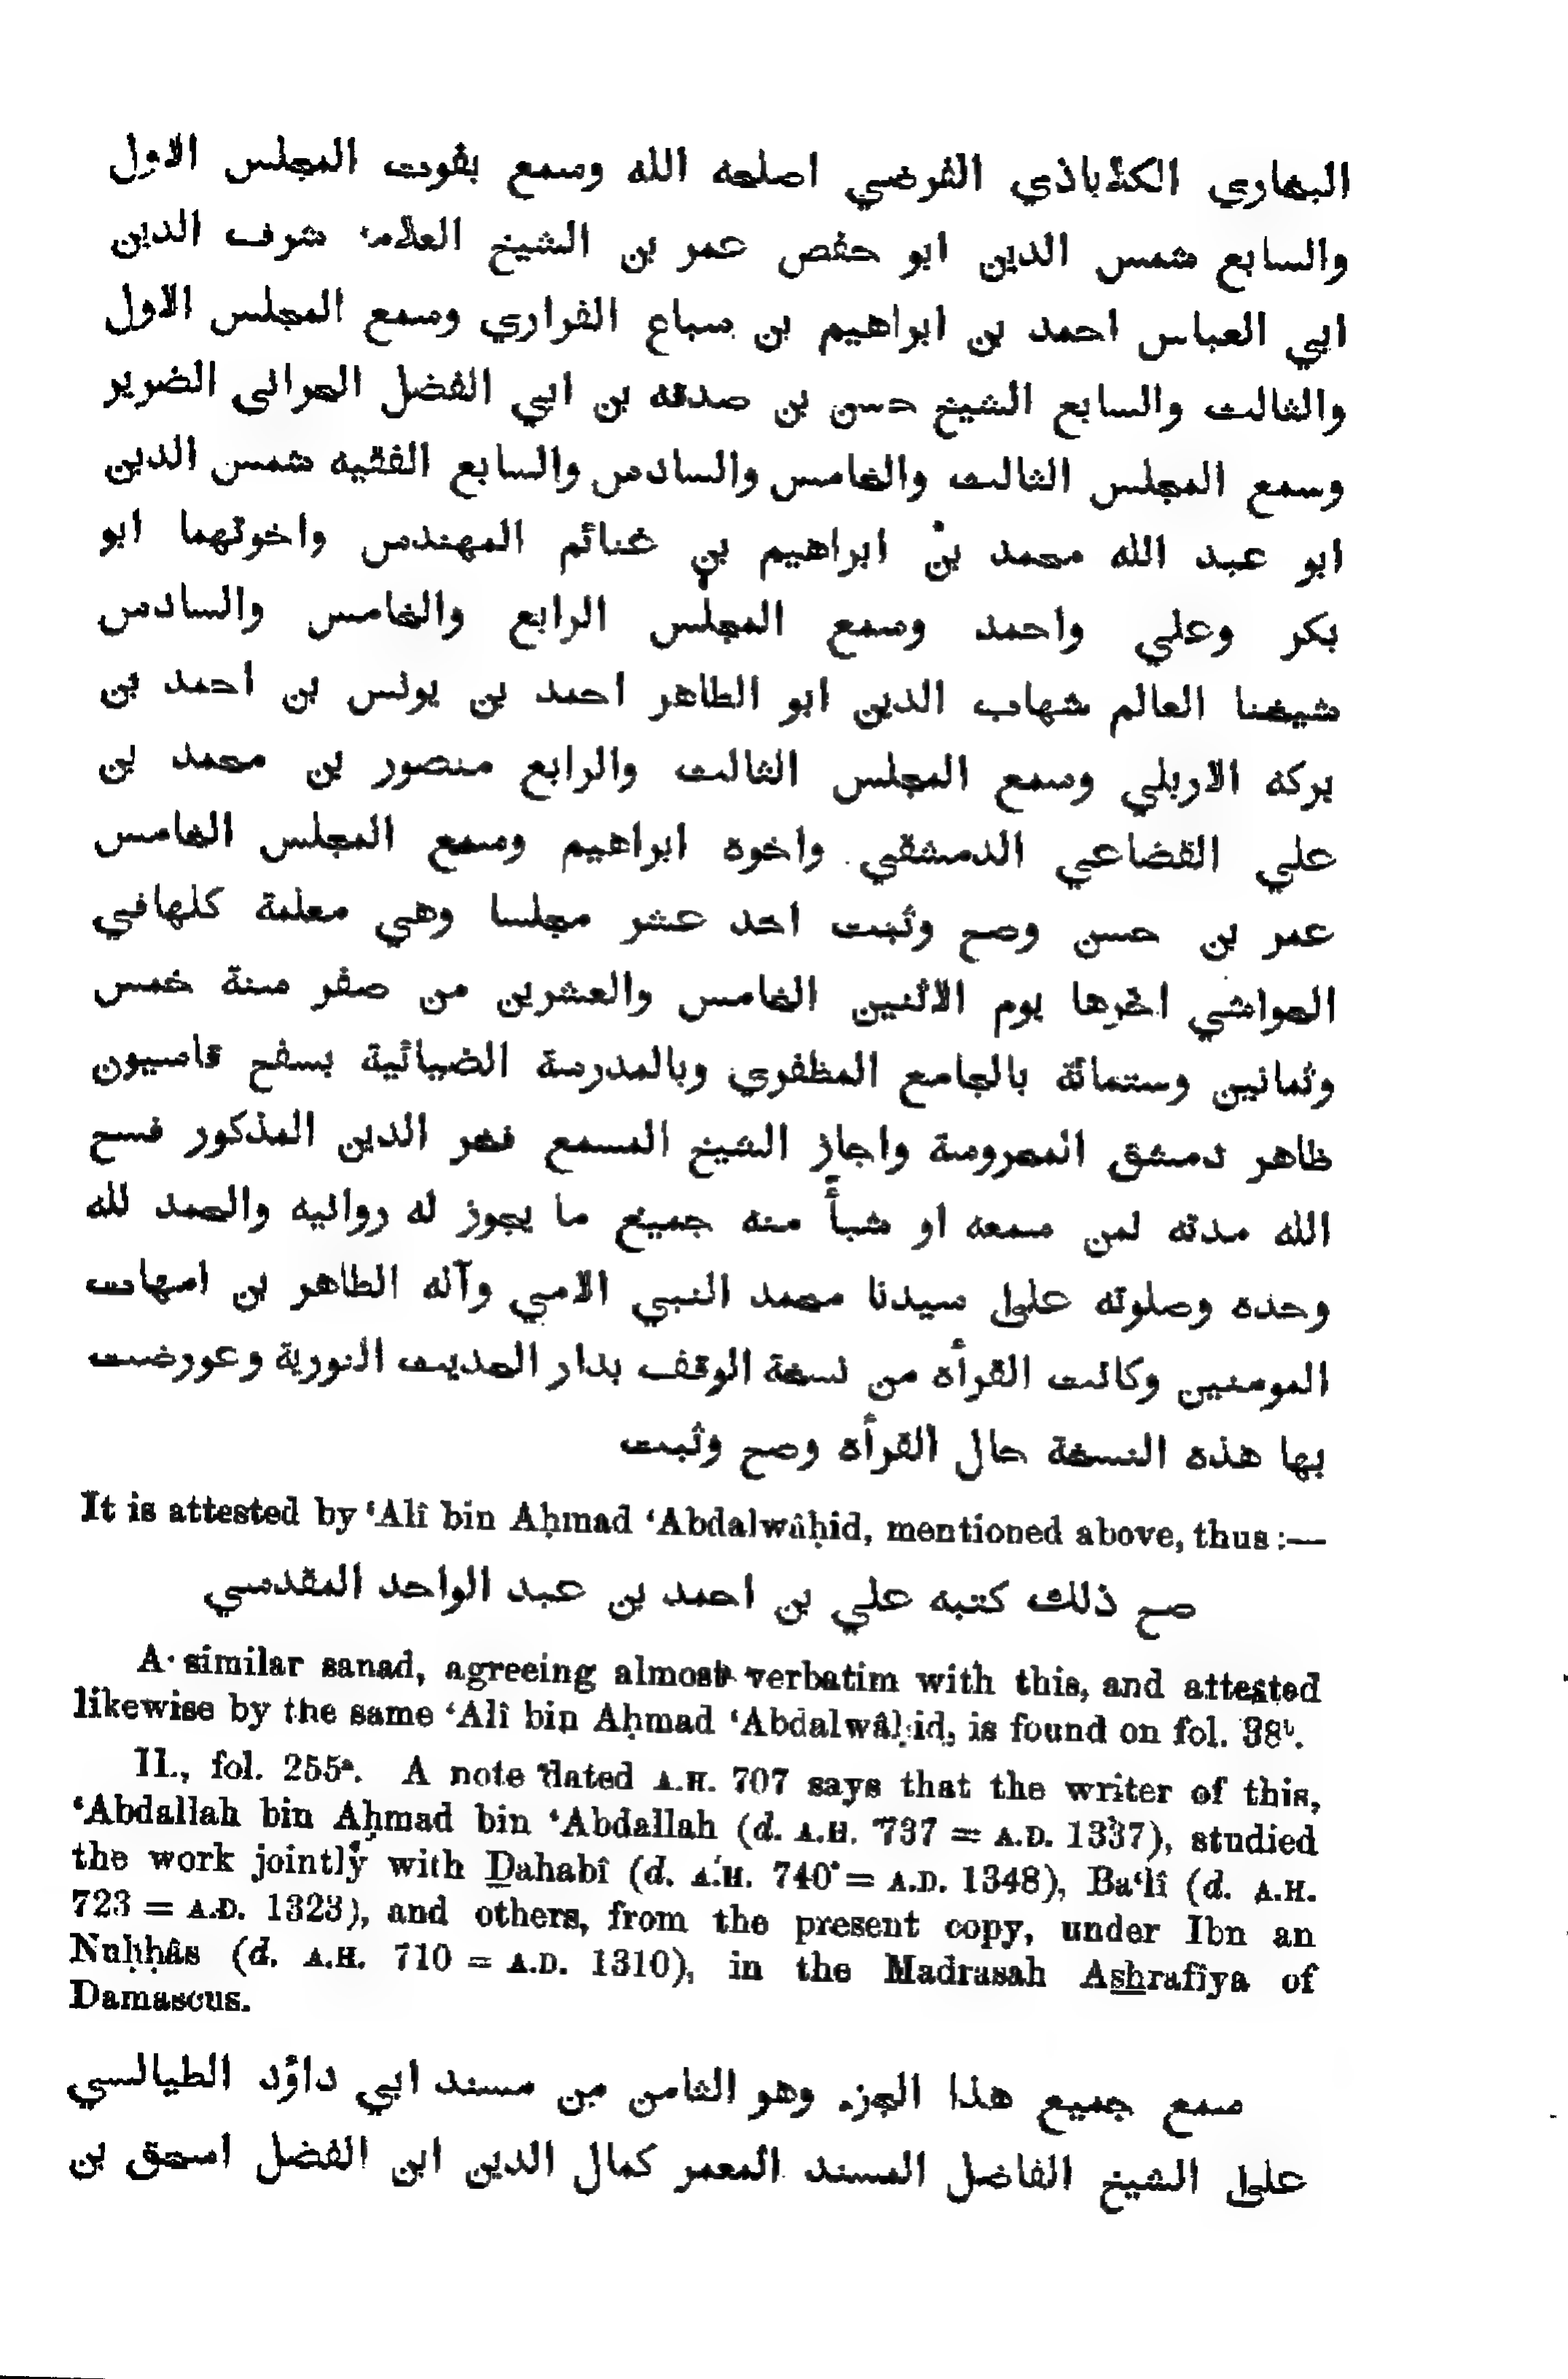 البخاري الكلاباذي الفرضي اصلحه الله وسمع بفوت المجلس الاول
والسابع شمس الدين ابو حفص عمر بن الشيخ العلامة شرف الدين
ابي العباس احمد بن ابراهيم بن سباع الفراري وسمع المجلس الاول
والثالث والسابع الشيخ حسن بن صدقه بن ابي الفضل الحراني الضرير
وسمع المجلس الثالث والخامس والسادس والسابع الفقيه شمس الدين
ابو عبد الله محمد بن ابراهيم بن غنائم المهندس واخوتهما ابو
بكر وعلي واحمد وسمع المجلس الرابع والخامس والسادس
شيخنا العالم شهاب الدين ابو الطاهر احمد بن يونس بن احمد بن
بركه الاربلي وسمع المجلس الثالث والرابع منصور بن محمد بن
علي القضاعي الدمشقي واخوه ابراهيم وسمع المجلس الخامس
عمر بن حسن وصح وثبت احد عشر مجلسا وهي معلمة كلهافي
الحواشي اخرها يوم الاثنين الخامس والعشرين من صفر سنة خمس
وثمانين وستمائة بالجامع المظفري وبالمدرسة الضيائية بسفح قاسيون
ظاهر دمشق المحروسة واجاز الشيخ المسمع فخر الدين المذكور فسح
الله مدته لمن سمعه او شيأً منه جميع ما يجوز له روايته والحمد لله
وحده وصلوته على سيدنا محمد النبي الامي وآله الطاهر بن امهات
المومنين وكانت القرأه من نسخة الوقف بدار الحديث النورية وعورضت
بها هذه النسخة حال القرأه وصح وثبت
It is attested by ‘Alî bin Aḥmad ‘Abdalwâḥid, mentioned above, thus :—
صح ذلك كتبه علي بن احمد بن عبد الواحد المقدسي
A similar sanad, agreeing almost verbatim with this, and attested
likewise by the same ‘Alî bin Aḥmad ‘Abdalwâḥid, is found on fol. 38ᵇ.
II., fol. 255ᵃ. A note dated A.H. 707 says that the writer of this,
‘Abdallah bin Aḥmad bin ‘Abdallah (d. A.H. 737 = A.D. 1337), studied
the work jointly with Ḏahabî (d. A.H. 740 = A.D. 1348), Ba‘lî (d. A.H.
723 = A.D. 1323), and others, from the present copy, under Ibn an
Nuḥḥâs (d. A.H. 710 = A.D. 1310), in the Madrasah Ashrafîya of
Damascus.
سمع جميع هذا الجزء وهو الثامن من مسند ابي داؤد الطيالسي
على الشيخ الفاضل المسند المعمر كمال الدين ابن الفضل اسحق بن